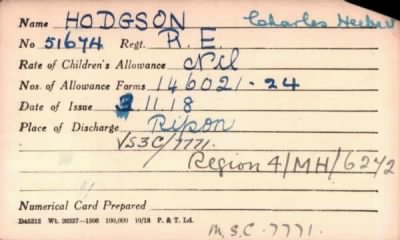 Name HODGSON Charles Heeber
No 51674 Regt. R.E.
Rate of Children's Allowance Nil
Nos. of Allowance Forms 146021-24
Date of Issue 3.11.18
Place of Discharge Ripon
VS3C/7771.
Region 4/MH/6242
Numerical Card Prepared
D45312 Wt. 26337—1506 100,000 10/18 P. & T. Ld.
M.S.C-7771.